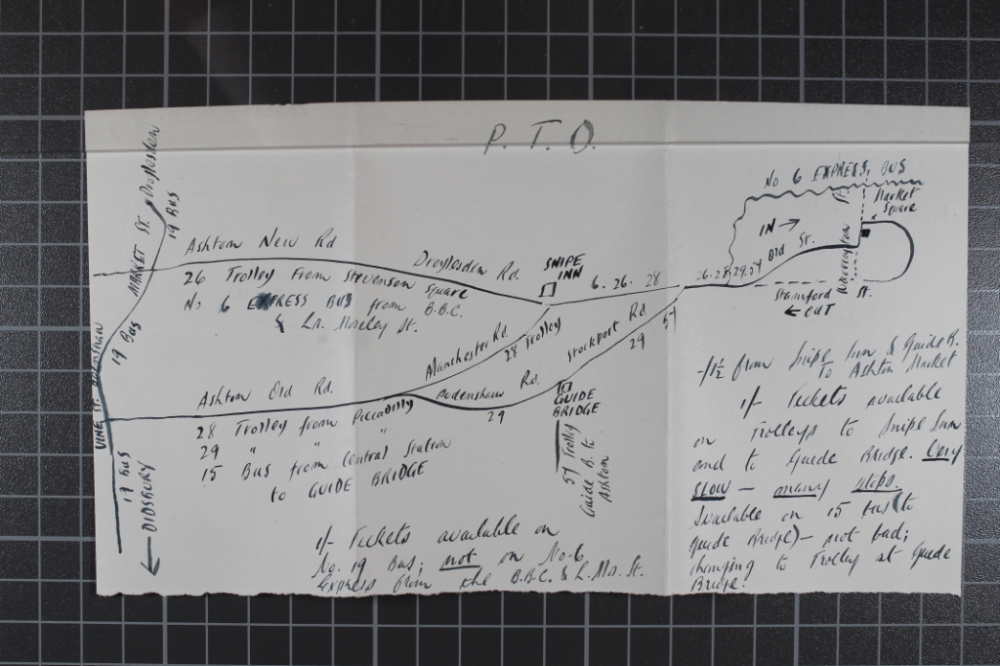 P. T. O.
Droylsden
19 Bus
MARKET St.
19 Bus
VINE St.
19 Bus
← DIDSBURY
Ashton New Rd
26 Trolley From Stevenson Square
No 6 EXPRESS BUS from B.B.C.
& Lr. Mosley St.
Droylesden Rd.
SNIPE
INN
6. 26. 28
26.28.29.57
Manchester Rd.
28 Trolley
Stockport Rd.
29
57
Ashton Old Rd.
Audenshaw Rd.
29
28 Trolley from Piccadilly
29 " "
15 Bus from Central Station
to GUIDE BRIDGE
GUIDE
BRIDGE
57 Trolley
Guide B. to
Ashton
No 6 EXPRESS, BUS
Market
Square
IN →
Old St.
Warrington
St.
Stamford St.
← OUT
1/- Tickets available on
No. 19 Bus; not on No. 6
Express from the B.B.C. & L. Mos. St.
-/1½ from Snipe Inn & Guide B.
To Ashton Market
1/- Tickets available
on Trolleys to Snipe Inn
and to Guide Bridge. Very
SLOW — many stops.
Available on 15 bus (to
Guide Bridge) — not bad;
changing to Trolley at Guide
Bridge.